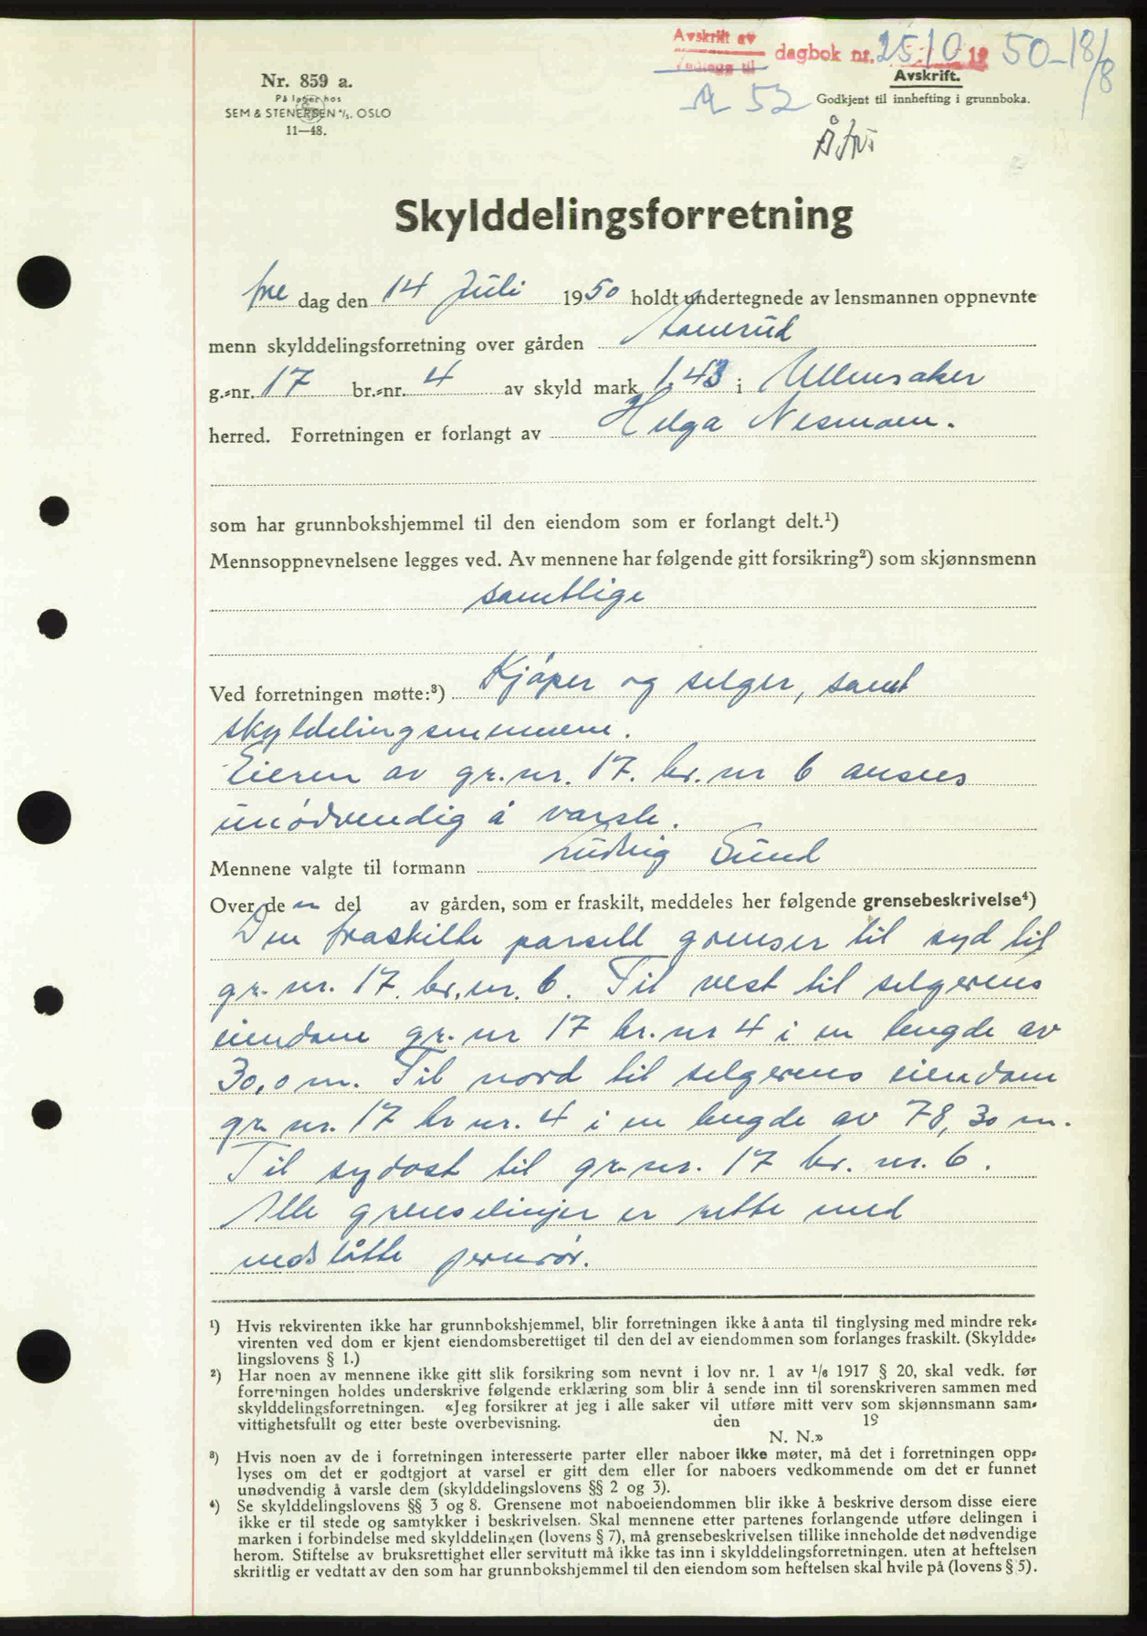 Avskrift av
Vedlegg til
dagbok nr. 2510 19 50-18/8
Avskrift.
Nr. 859 a.
På lager hos
SEM & STENERSEN A/S. OSLO
11—48.
A 52
Godkjent til innhefting i grunnboka.
Skylddelingsforretning
fre dag den 14 Juli 1950 holdt undertegnede av lensmannen oppnevnte
menn skylddelingsforretning over gården
g.-nr. 17 br.-nr. 4 av skyld mark 1,43 i Ullensaker
herred. Forretningen er forlangt av Helga Nesmoen.
som har grunnbokshjemmel til den eiendom som er forlangt delt.¹)
Mennsoppnevnelsene legges ved. Av mennene har følgende gitt forsikring²) som skjønnsmenn
samtlige
Ved forretningen møtte:³) Kjøper og selger, samt
skyldelingsmennene.
Eieren av gr. nr. 17. br. nr 6 ansees
unødvendig å varsle.
Mennene valgte til formann Ludvig Sund
Over de en del av gården, som er fraskilt, meddeles her følgende grensebeskrivelse⁴)
Den fraskilte parsell grenser til syd til
gr. nr. 17. br. nr. 6. Til vest til selgerens
eiendom gr. nr 17 br. nr 4 i en lengde av
30,0 m. Til nord til selgerens eiendom
gr. nr. 17 br nr. 4 i en lengde av 78,30 m.
Til sydost til gr. nr. 17 br. nr. 6.
Alle grenselinjer er rette med
nedslåtte jernrør.
¹) Hvis rekvirenten ikke har grunnbokshjemmel, blir forretningen ikke å anta til tinglysing med mindre rek-
virenten ved dom er kjent eiendomsberettiget til den del av eiendommen som forlanges fraskilt. (Skyldde-
lingslovens § 1.)
²) Har noen av mennene ikke gitt slik forsikring som nevnt i lov nr. 1 av 1/6 1917 § 20, skal vedk. før
forretningen holdes underskrive følgende erklæring som blir å sende inn til sorenskriveren sammen med
skylddelingsforretningen. «Jeg forsikrer at jeg i alle saker vil utføre mitt verv som skjønnsmann sam-
vittighetsfullt og etter beste overbevisning. den 19
N. N.»
³) Hvis noen av de i forretningen interesserte parter eller naboer ikke møter, må det i forretningen opp-
lyses om det er godtgjort at varsel er gitt dem eller for naboers vedkommende om det er funnet
unødvendig å varsle dem (skylddelingslovens §§ 2 og 3).
⁴) Se skylddelingslovens §§ 3 og 8. Grensene mot naboeiendommen blir ikke å beskrive dersom disse eiere
ikke er til stede og samtykker i beskrivelsen. Skal mennene etter partenes forlangende utføre delingen i
marken i forbindelse med skylddelingen (lovens § 7), må grensebeskrivelsen tillike inneholde det nødvendige
herom. Stiftelse av bruksrettighet eller servitutt må ikke tas inn i skylddelingsforretningen. uten at heftelsen
skriftlig er vedtatt av den som har grunnbokshjemmel til den eiendom som heftelsen skal hvile på (lovens § 5).